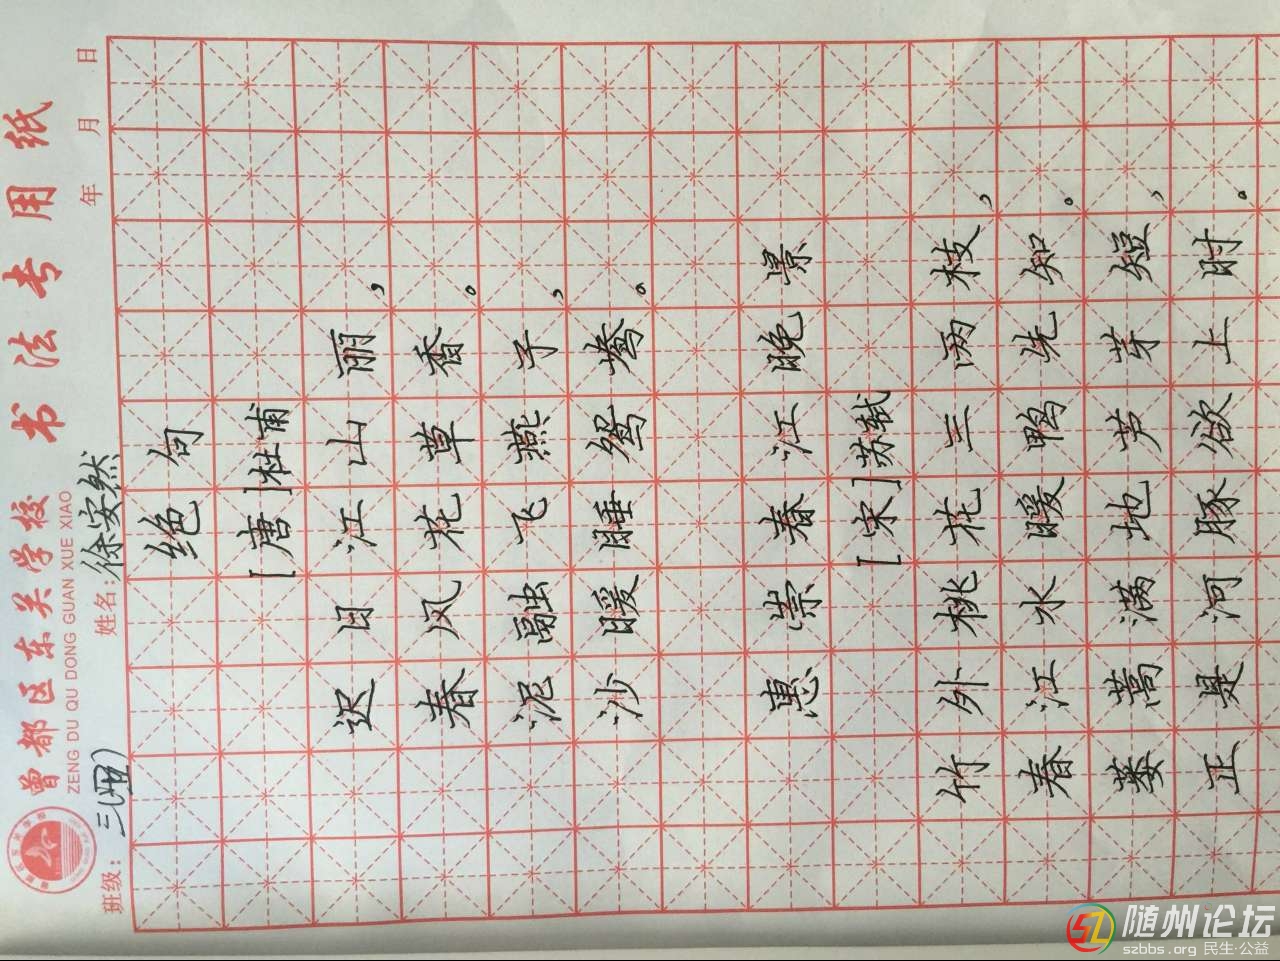 曾都区东关学校 书法专用纸
ZENG DU QU DONG GUAN XUE XIAO
班级：三(四) 姓名：徐安然 年 月 日
绝句
[唐]杜甫
迟日江山丽，
春风花草香。
泥融飞燕子，
沙暖睡鸳鸯。
惠崇春江晚景
[宋]苏轼
竹外桃花三两枝，
春江水暖鸭先知。
蒌蒿满地芦芽短，
正是河豚欲上时。
随州论坛
szbbs.org 民生·公益